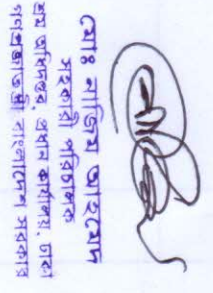 মোঃ নাজিম আহমেদ
সহকারী পরিচালক
শ্রম অধিদপ্তর প্রধান কার্যালয়, ঢাকা
গণপ্রজাতন্ত্রী বাংলাদেশ সরকার